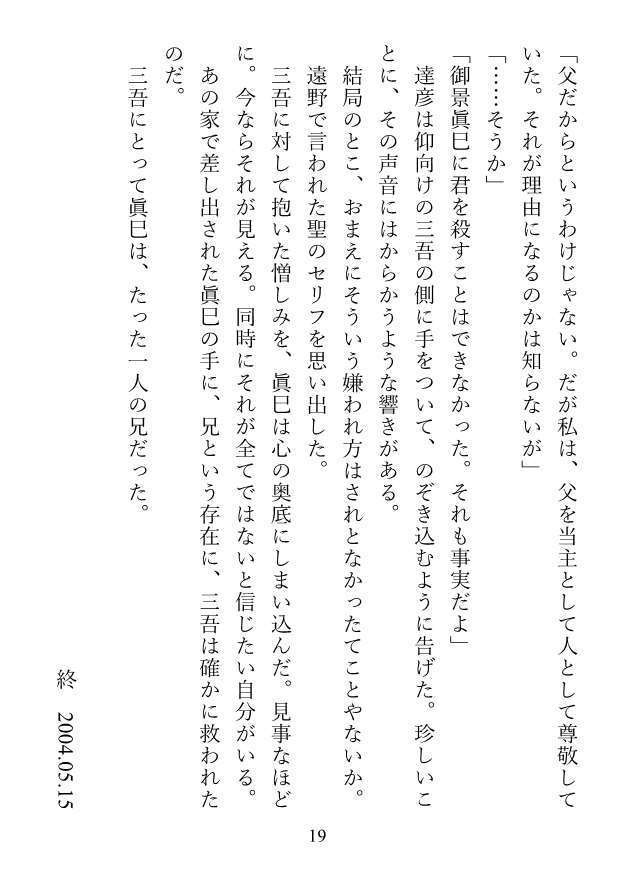 「父だからというわけじゃない。だが私は、父を当主として人として尊敬して
いた。それが理由になるのかは知らないが」
「……そうか」
「御景眞巳に君を殺すことはできなかった。それも事実だよ」
達彦は仰向けの三吾の側に手をついて、のぞき込むように告げた。珍しいこ
とに、その声音にはからかうような響きがある。
結局のとこ、おまえにそういう嫌われ方はされとなかったてことやないか。
遠野で言われた聖のセリフを思い出した。
三吾に対して抱いた憎しみを、眞巳は心の奥底にしまい込んだ。見事なほど
に。今ならそれが見える。同時にそれが全てではないと信じたい自分がいる。
あの家で差し出された眞巳の手に、兄という存在に、三吾は確かに救われた
のだ。
三吾にとって眞巳は、たった一人の兄だった。
終　2004.05.15
19